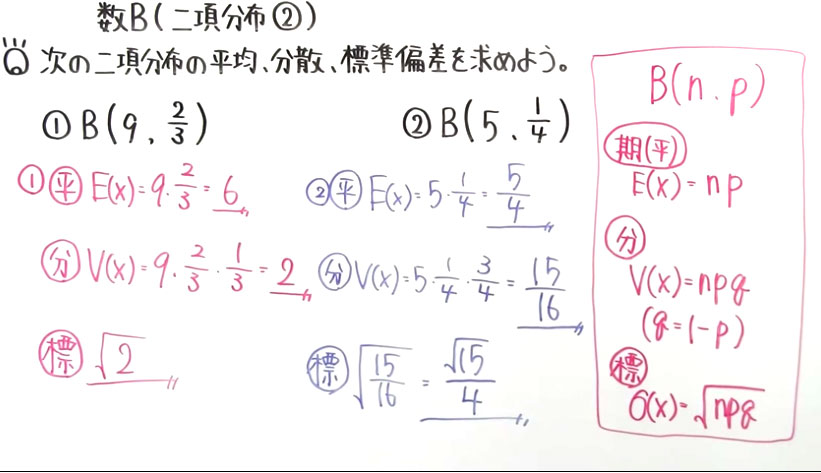 数B(二項分布②)
次の二項分布の平均、分散、標準偏差を求めよう。
① B(9, 2/3)
② B(5, 1/4)
① 平 E(x)=9・2/3=6
分 V(x)=9・2/3・1/3=2
標 √2
② 平 E(x)=5・1/4=5/4
分 V(x)=5・1/4・3/4=15/16
標 √(15/16)=√15/4
B(n, p)
期(平)
E(x)=np
分
V(x)=npq
(q=1-p)
標
σ(x)=√npq